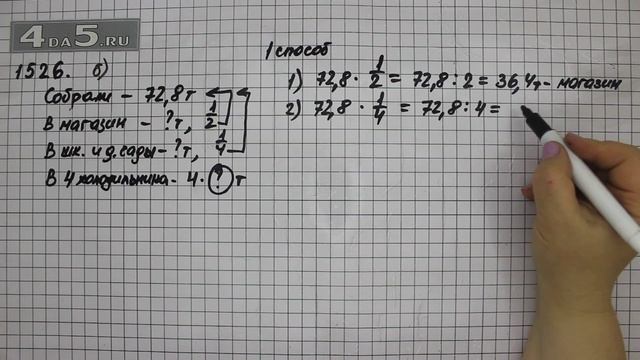 4DA5.RU
1526. б)
Собрали – 72,8 т
В магазин – ? т, 1/2
В шк. и д. сады – ? т, 1/4
В 4 холодильника – 4 · ? т
1 способ
1) 72,8 · 1/2 = 72,8 : 2 = 36,4 т – магазин
2) 72,8 · 1/4 = 72,8 : 4 =